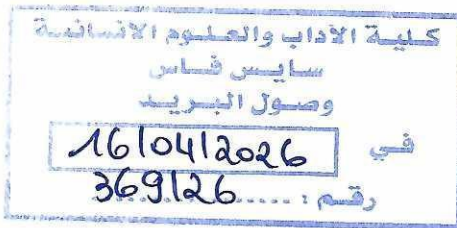 كلية الآداب والعلوم الانسانية
سايس فاس
وصول البريد
في 16/04/2026
رقم : ..... 369/26